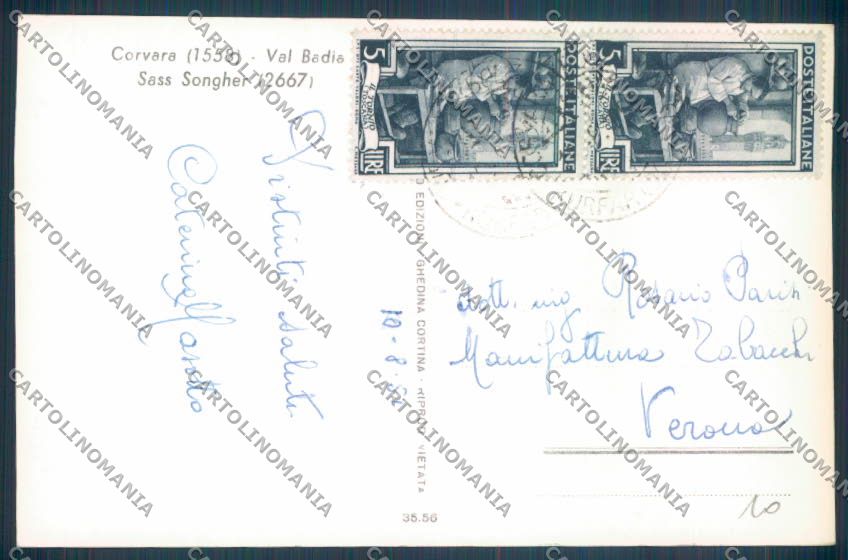 Corvara (1558) - Val Badia
Sass Songher (2667)
Distinti saluti
10-8-51
EDIZIONI GHEDINA CORTINA - RIPROD. VIETATA
35.56
5 LIRE
POSTE ITALIANE
5 LIRE
POSTE ITALIANE
dott. ing Rosario
Manifattura Tabacchi
Verona
10
CARTOLINOMANIA